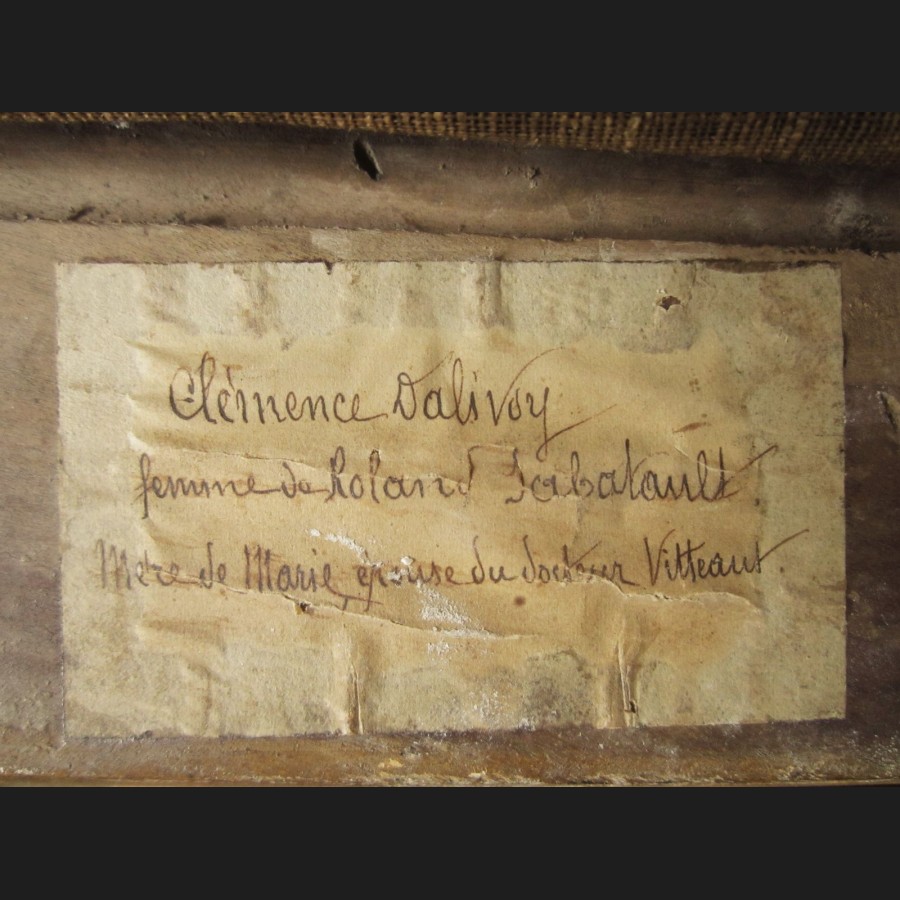 Clémence Dalivoy
femme de Roland Sabatault.
Mère de Marie, épouse du docteur Vitteaut.